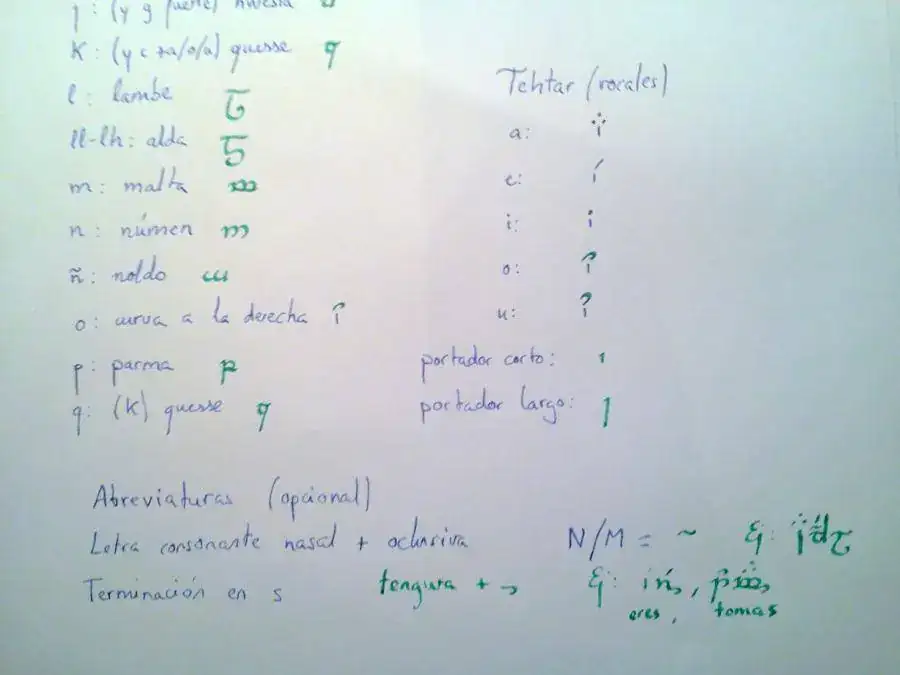 j: (y g fuerte) hwesta
K: (y c +a/o/u) quesse
l: lambe
ll-lh: alda
m: malta
n: númen
ñ: noldo
o: curva a la derecha
p: parma
q: (K) quesse
Tehtar (vocales)
a:
e:
i:
o:
u:
portador corto:
portador largo:
Abreviaturas (opcional)
Letra consonante nasal + oclusiva N/M = ~ Ej:
Terminación en s tengwa + Ej: ,
eres, tomas